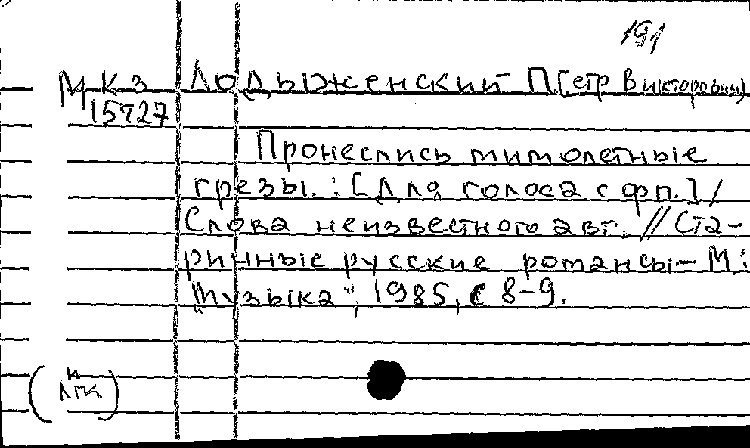 191
МКЗ Лодыженский П[етр Викторович]
15727
Пронеслись мимолетные
грезы. : [Для голоса с фп.] /
Слова неизвестного авт. // Ста-
ринные русские романсы – М:
"Музыка", 1985, с 8-9.